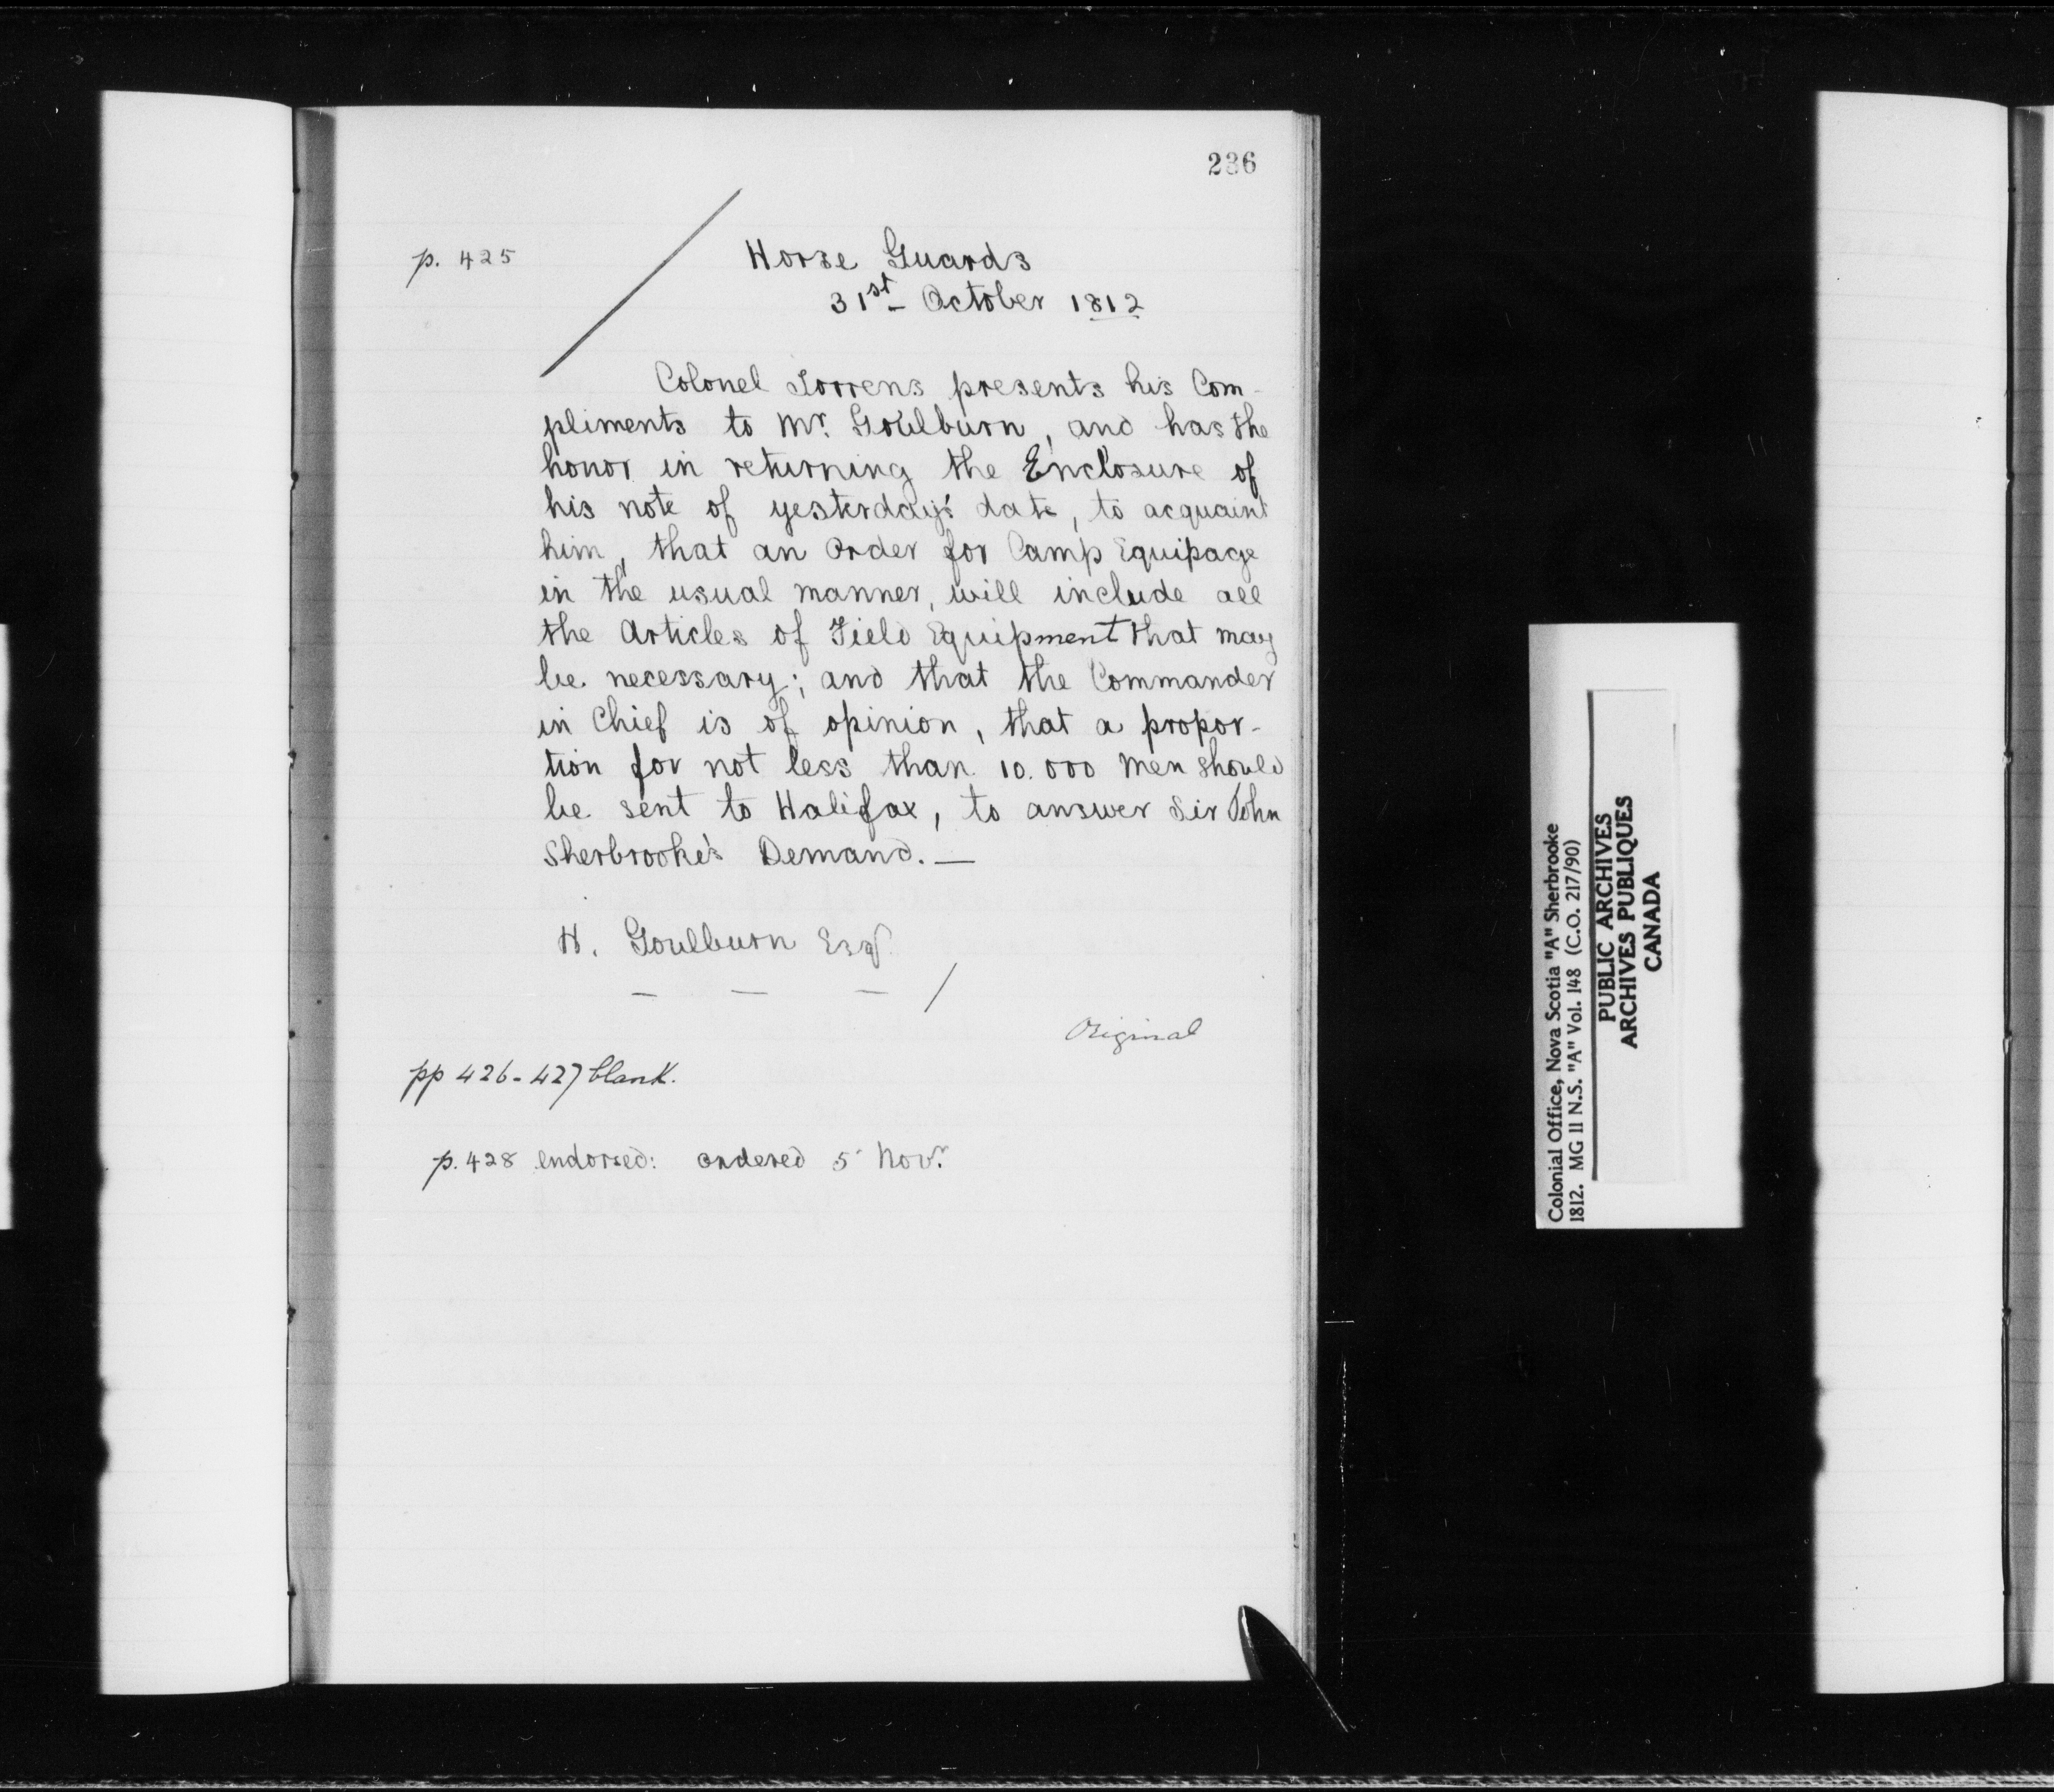 236
p. 425
Horse Guards
31st October 1812
Colonel Torrens presents his Com-
pliments to Mr. Goulburn, and has the
honor in returning the Enclosure of
his note of yesterday's date, to acquaint
him, that an Order for Camp Equipage
in the usual manner, will include all
the Articles of Field Equipment that may
be necessary; and that the Commander
in Chief is of opinion, that a propor-
tion for not less than 10.000 Men should
be sent to Halifax, to answer Sir John
Sherbrooke's Demand.—
H. Goulburn Esqr.
— — — /
Original
pp 426-427 blank.
p. 428 endorsed: ordered 5 Novr.
Colonial Office, Nova Scotia "A" Sherbrooke
1812. MG 11 N.S. "A" Vol. 148 (C.O. 217/90)
PUBLIC ARCHIVES
ARCHIVES PUBLIQUES
CANADA